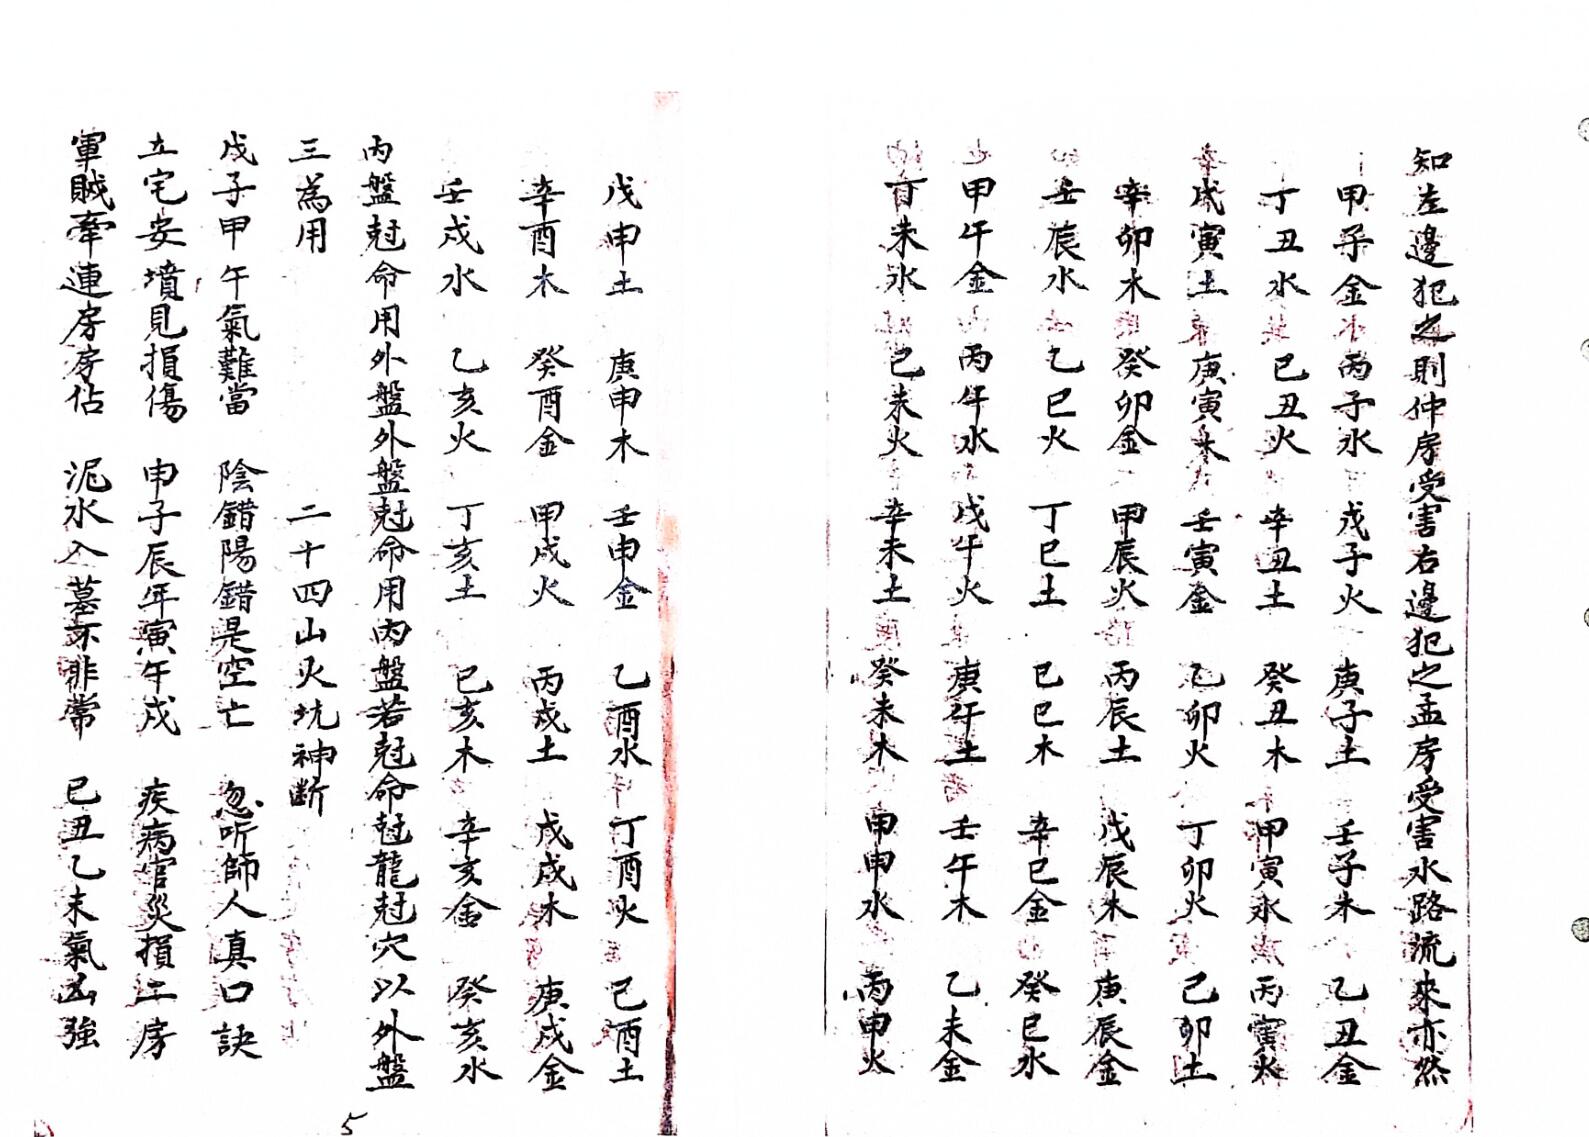 知左邊犯之則仲房受害右邊犯之孟房受害水路流來亦然
甲子金 丙子水 戊子火 庚子土 壬子木 乙丑金
丁丑水 己丑火 辛丑土 癸丑木 甲寅水 丙寅火
戊寅土 庚寅木 壬寅金 乙卯火 丁卯火 己卯土
辛卯木 癸卯金 甲辰火 丙辰土 戊辰木 庚辰金
壬辰水 乙巳火 丁巳土 巳巳木 辛巳金 癸巳水
甲午金 丙午水 戊午火 庚午土 壬午木 乙未金
丁未水 己未火 辛未土 癸未木 甲申水 丙申火
戊申土 庚申木 壬申金 乙酉水 丁酉火 己酉土
辛酉木 癸酉金 甲戌火 丙戌土 戊戌木 庚戌金
壬戌水 乙亥火 丁亥土 己亥木 辛亥金 癸亥水
內盤尅命用外盤外盤尅命用內盤若尅命尅龍尅穴以外盤
三為用 二十四山火坑神断
戊子甲午氣難當 陰錯陽錯是空亡 忽听師人真口訣
立宅安墳見損傷 申子辰年寅午戌 疾病官災損二房
軍賊牽連房房佔 泥水入墓不非常 己丑乙未氣凶強
5